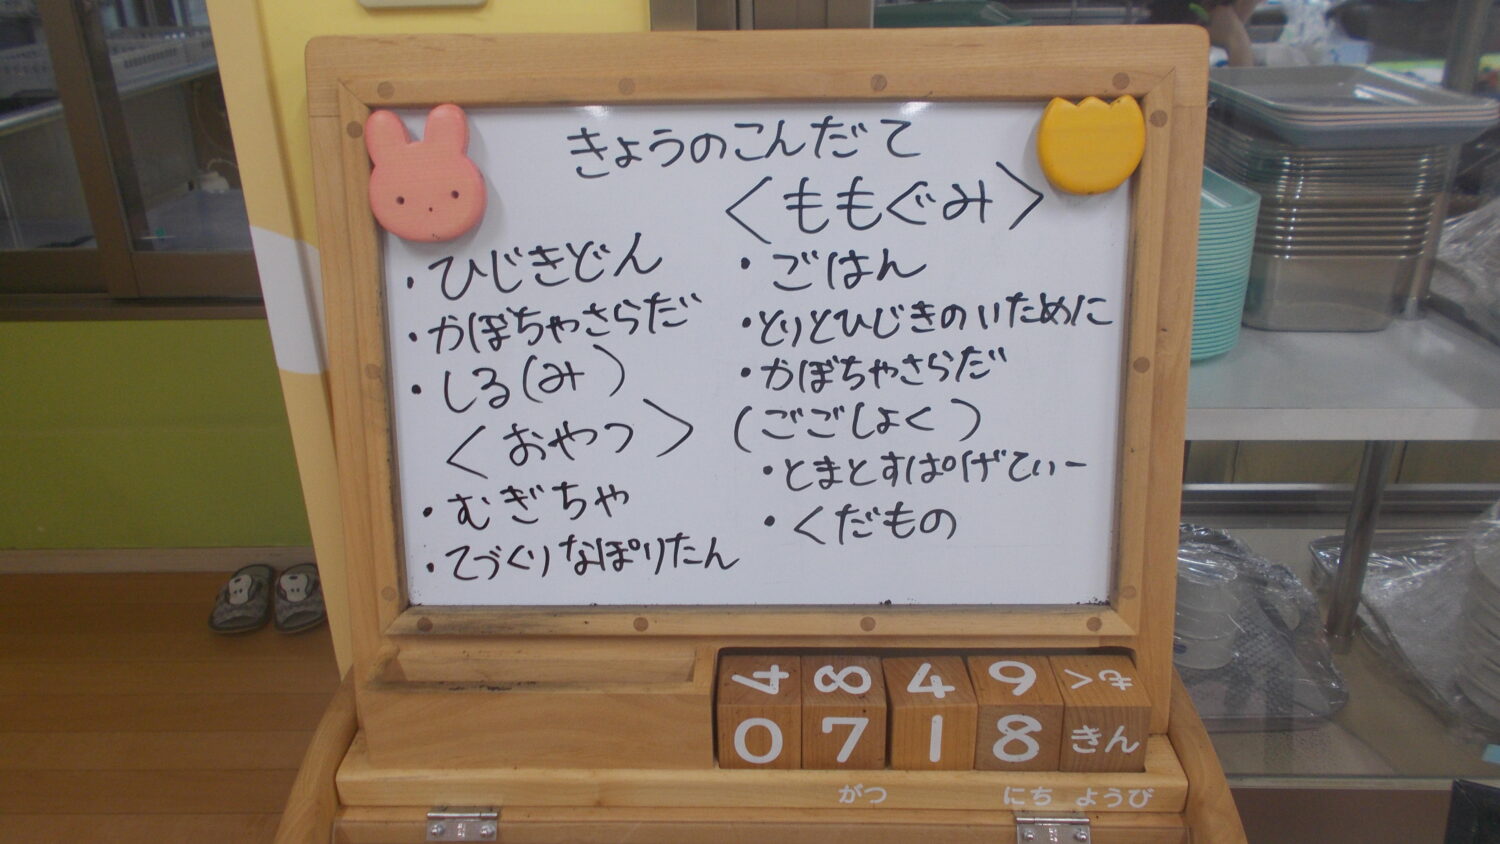 きょうのこんだて
・ひじきどん
・かぼちゃさらだ
・しる(み)
<おやつ>
・むぎちゃ
・てづくりなぽりたん
<ももぐみ>
・ごはん
・とりとひじきのいために
・かぼちゃさらだ
(ごごしょく)
・とまとすぱげてぃー
・くだもの
4 8 4 9 もく
0 7 1 8 きん
がつ にち ようび